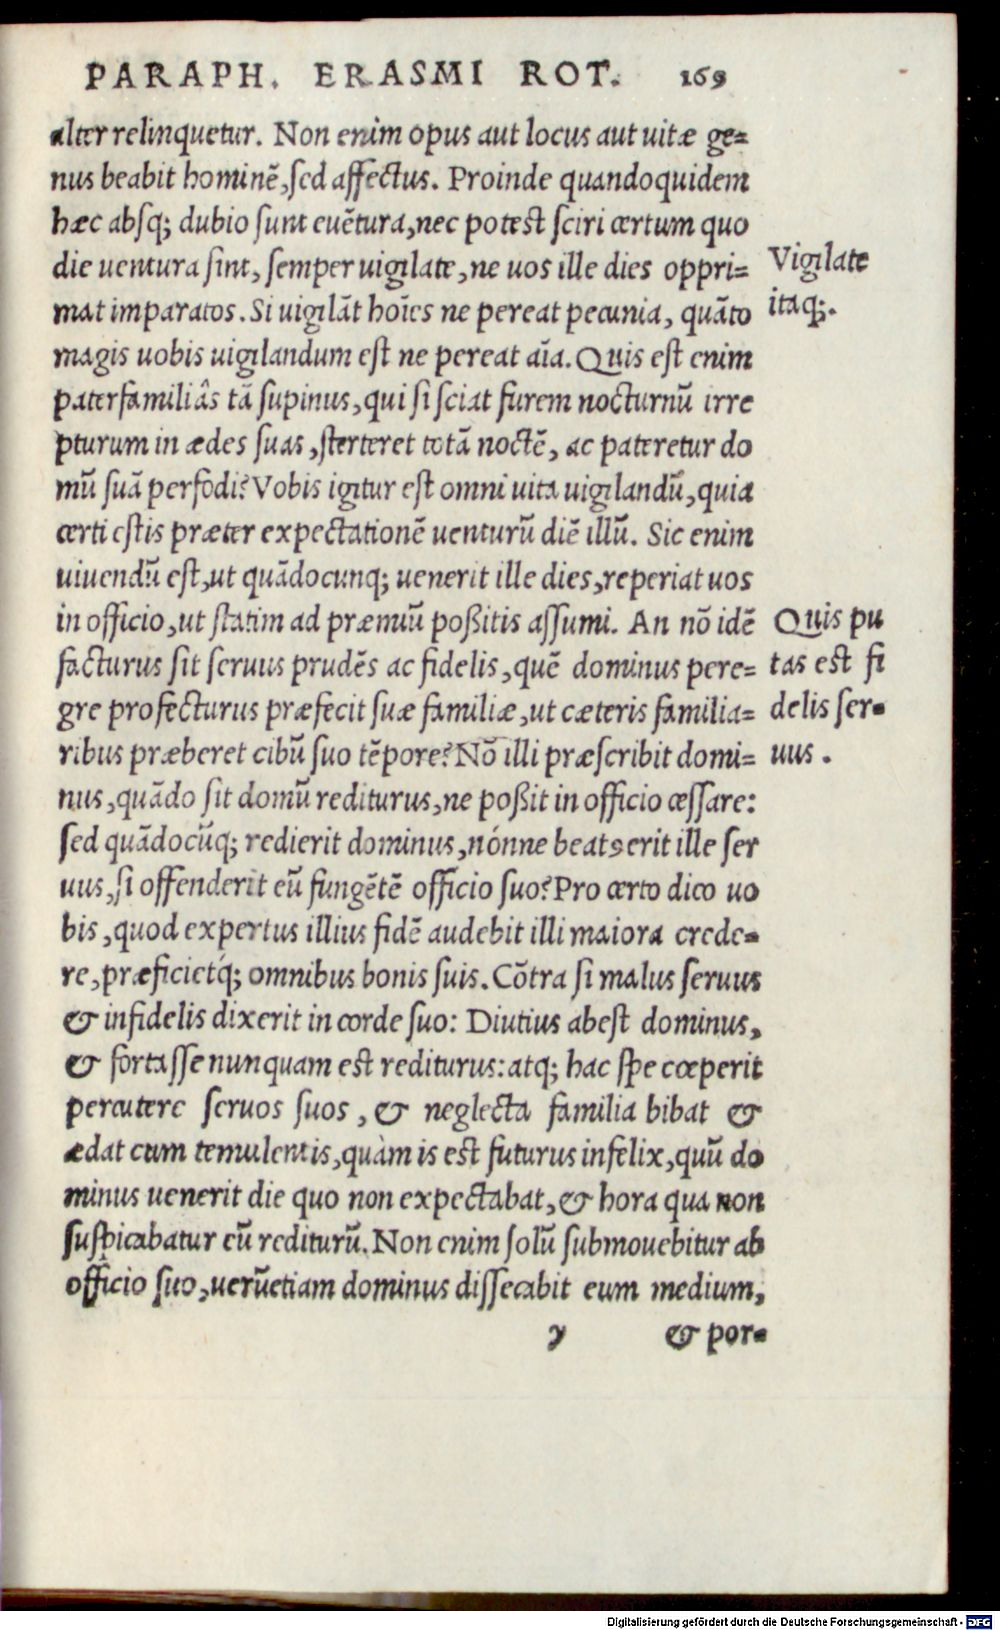 PARAPH. ERASMI ROT. 169
alter relinquetur. Non enim opus aut locus aut uitæ ge=
nus beabit hominē, sed affectus. Proinde quandoquidem
hæc absq; dubio sunt euētura, nec potest sciri certum quo
die uentura sint, semper uigilate, ne uos ille dies oppri=
mat imparatos. Si uigilāt hoīes ne pereat pecunia, quāto
magis uobis uigilandum est ne pereat aīa. Quis est enim
paterfamiliâs tā supinus, qui si sciat furem nocturnū irre
pturum in ædes suas, sterteret totā noctē, ac pateretur do
mū suā perfodi? Vobis igitur est omni uita uigilandū, quia
certi estis præter expectationē uenturū diē illū. Sic enim
uiuendū est, ut quādocunq; uenerit ille dies, reperiat uos
in officio, ut statim ad præmiū poßitis assumi. An nō idē
facturus sit seruus prudēs ac fidelis, quē dominus pere=
gre profecturus præfecit suæ familiæ, ut cæteris familia=
ribus præberet cibū suo tēpore? Nō illi præscribit domi=
nus, quādo sit domū rediturus, ne poßit in officio cessare:
sed quādocūq; redierit dominus, nónne beatꝰ erit ille ser
uus, si offenderit eū fungētē officio suo? Pro certo dico uo
bis, quod expertus illius fidē audebit illi maiora crede=
re, præficietq́; omnibus bonis suis. Cōtra si malus seruus
& infidelis dixerit in corde suo: Diutius abest dominus,
& fortasse nunquam est rediturus: atq; hac spe cœperit
percutere seruos suos, & neglecta familia bibat &
ædat cum temulentis, quàm is est futurus infelix, quū do
minus uenerit die quo non expectabat, & hora qua non
suspicabatur eū rediturū. Non enim solū submouebitur ab
officio suo, uerūetiam dominus dissecabit eum medium,
y & por=
Vigilate
itaq;.
Quis pu
tas est fi
delis ser=
uus.
Digitalisierung gefördert durch die Deutsche Forschungsgemeinschaft - DFG